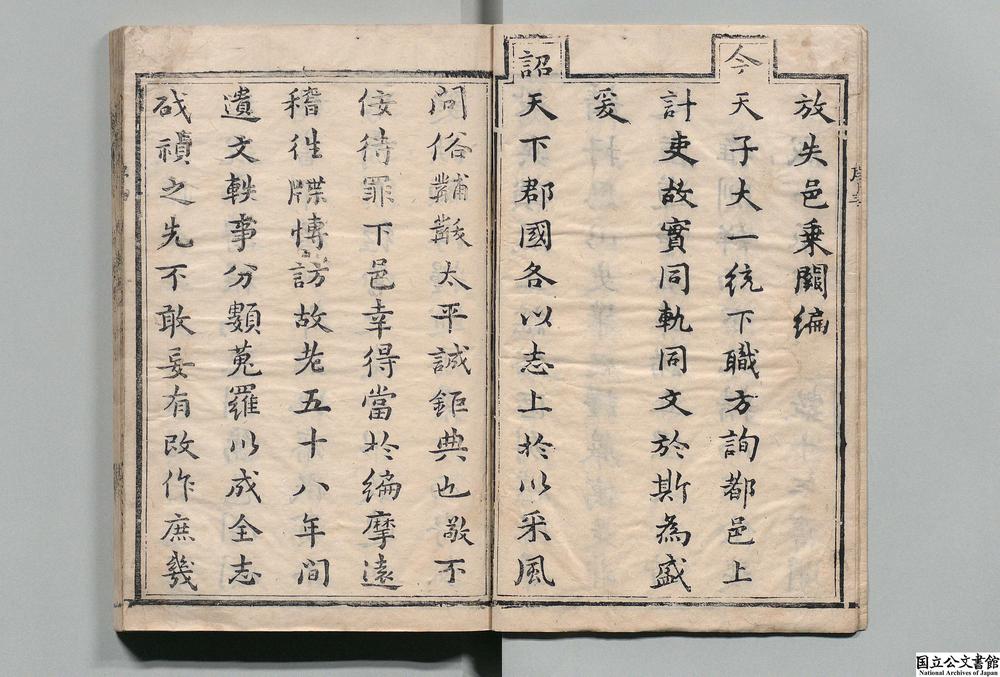 放失邑乗闕編
今
天子大一統下職方詢都邑上
計吏故實同軌同文於斯為盛
爰
詔
天下郡國各以志上於以采風
問俗黼黻太平誠鉅典也敬不
佞待罪下邑幸得當於編摩遠
稽徃牒愽訪故老五十八年間
遺文軼事分類蒐羅以成全志
砥礩之先不敢妄有改作庶幾
国立公文書館
National Archives of Japan